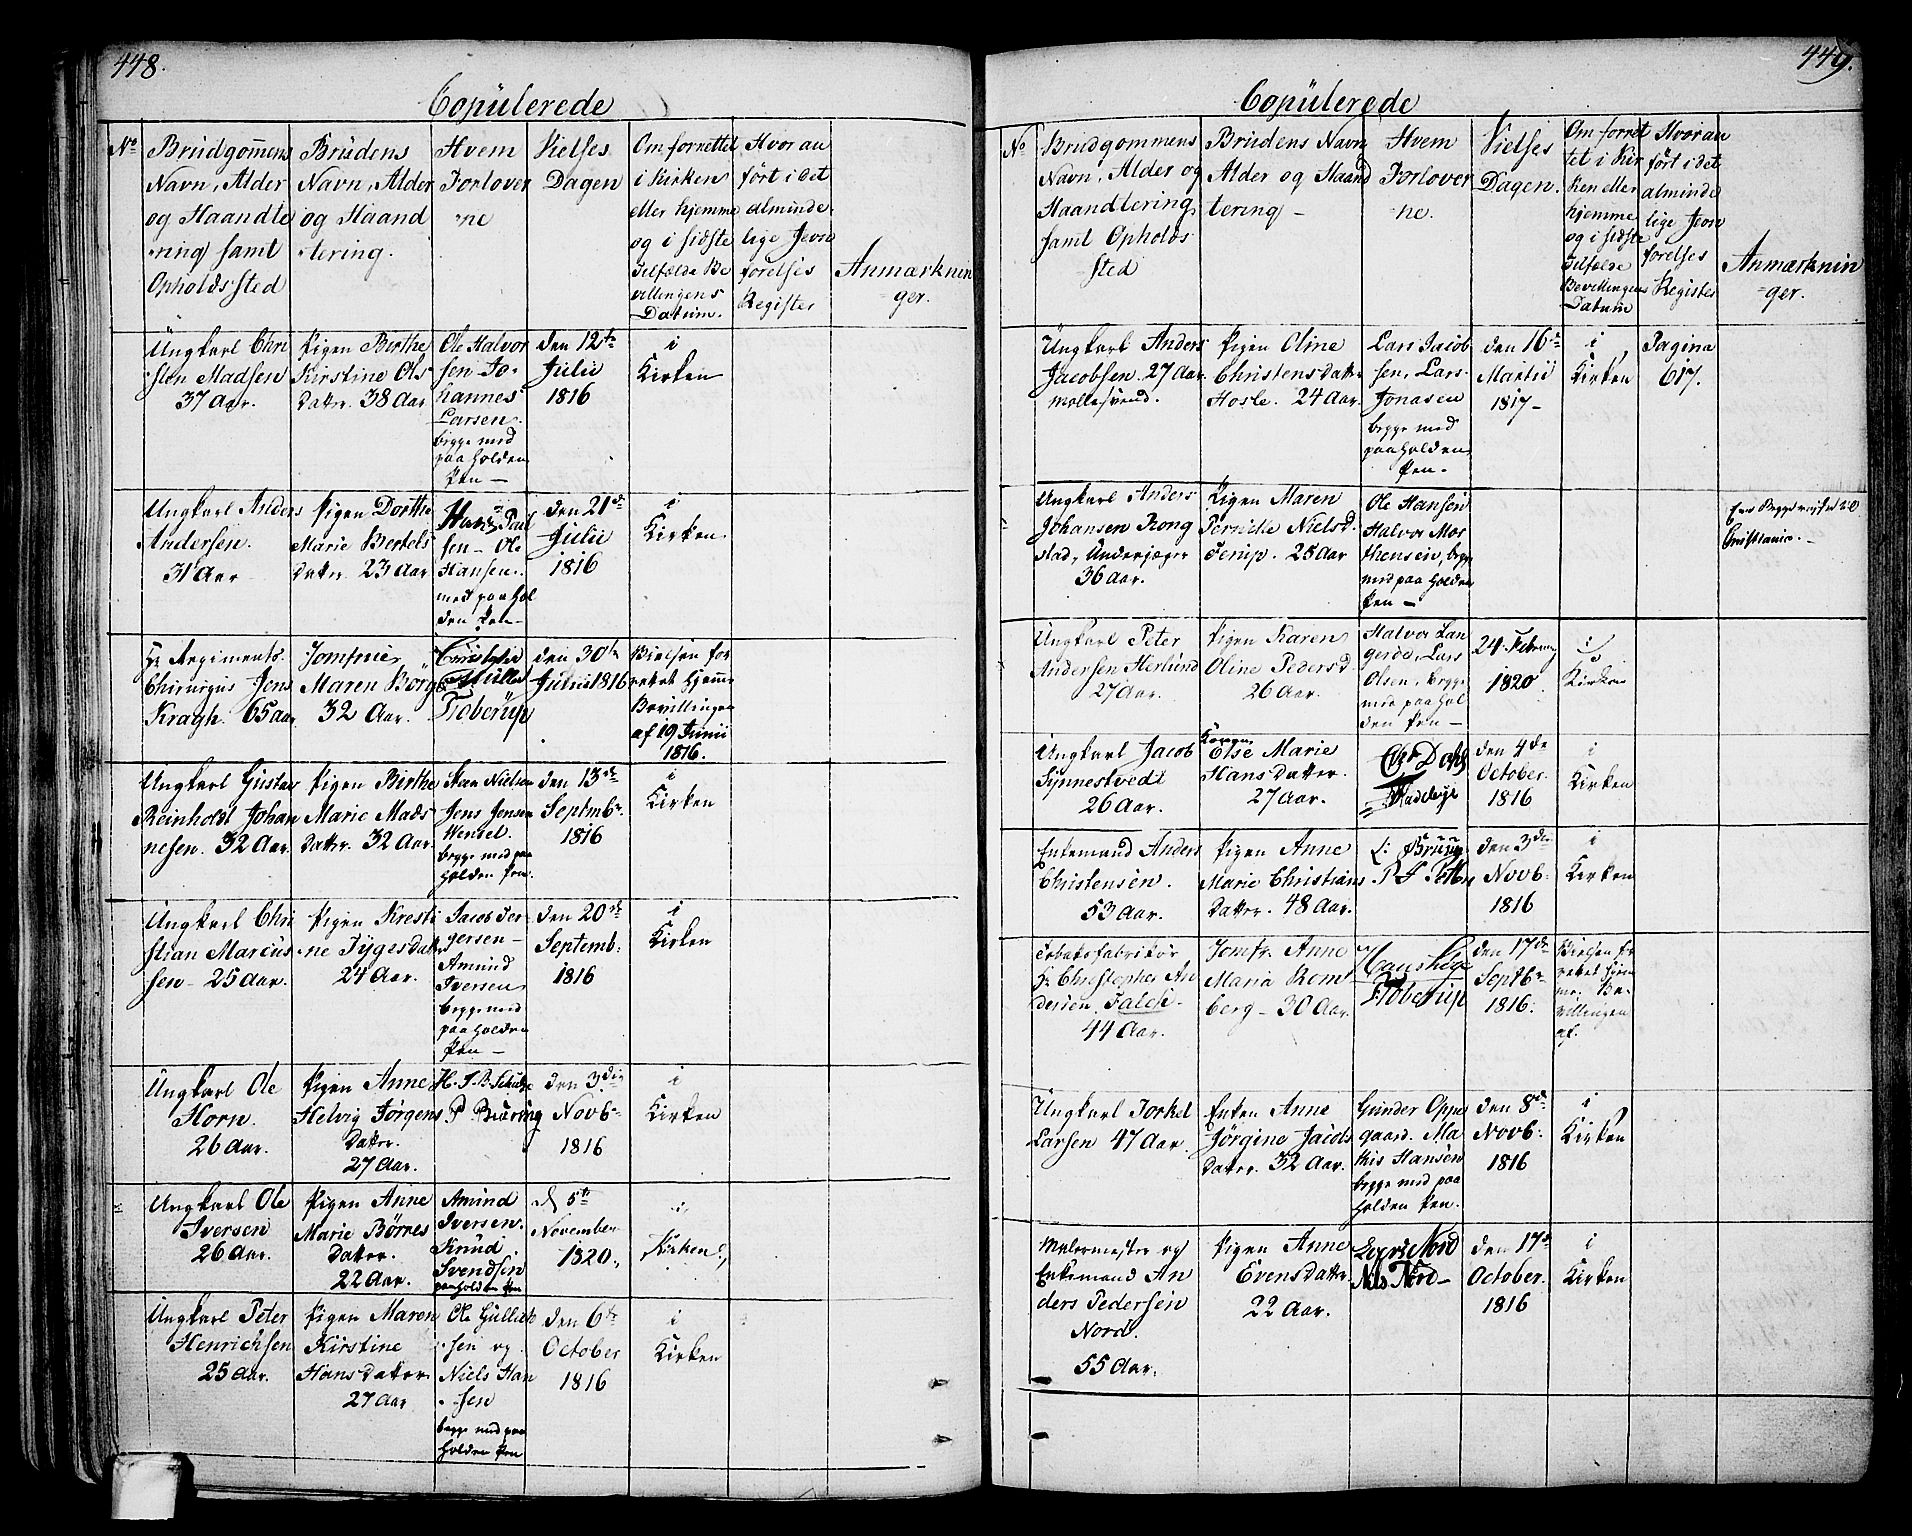 448.
Copülerede
No
Brüdgom̅ens
Navn, Alder
og Haandte
ring samt
Opholdssted
Brüdens
Navn, Alder
og Haand
tering.
Hvem
Forlover
ne
Vielses
Dagen
Om forrettet
i Kirken
eller hjemme
og i sidste
Tilfælde Be
villingens
Datum.
Hvor an
ført i det
alminde
lige Jevn
førelses
Register
Anmærknin
ger.
Ungkarl Chri
sten Madsen
37 Aar.
Pigen Birthe
Kirstine Ols
Datter. 38 Aar
Ole Halvor
sen Jo
hannes
Larsen.
begge med
paaholden
Pen
den 12te
Julii
1816
i
Kirken
Ungkarl Anders
Andersen.
31 Aar
Pigen Dorthe
Marie Bertels
Datter 23 Aar
Hans
sen Ole
Hansen.
med paahol
den Pen
den 21de
Julii
1816
i
Kirken.
Hr Regiments
Chirurgus Jens
Kragh. 65 aar
Jomfrue
Maren Borge
32 Aar.
Müller
Floberüp
den 30te
Julii 1816
Vielsen for
rettet hjem̅e
Bevillingen
af 19 Junii
1816.
Ungkarl Gustav
Reinholdt Johan
nesen. 32 Aar.
Pigen Birthe
Marie Mads
Datter. 32 Aar.
Nielsen
Jens Jensen
Wensel.
begge med paa
holden Pen.
den 13de
Septembr.
1816
i
Kirken
Ungkarl Chri
stian Marcus
sen 25 Aar.
Pigen Kresti
ne Tygesdatter
24 Aar.
Jacob Jør
gersen
Amund
Iversen
begge med
paaholden
Pen
den 20de
Septemb:
1816
i
Kirken
Ungkarl Ole
Horn.
26 Aar.
Pigen Anne
Helvig Jørgens
Datter.
27 Aar.
H. J. B. Schulze
P Buöring
den 3die
Novb
1816
i
Kirken
Ungkarl Ole
Iversen
26 Aar.
Pigen Anne
Marie Börnes
Datter.
22 Aar.
Amund
Iversen.
Knud
Svendsen
paaholden Pen
d 5te
November
1820.
i
Kirken
Ungkarl Peter
Henrichsen
25 Aar.
Pigen Maren
Kirstine
Hansdatter
27 Aar
Ole Gullich
sen og
Niels Han
sen
begge med paa
holden Pen
den 6te
October
1816
i
Kirken
449.
Copülerede
No
Brudgommens
Navn, Alder og
Haandtering
samt Opholds
sted
Brüdens Navn
Alder og Haand
tering
Hvem
Forlover
ne.
Vielses
Dagen.
Om forret
tet i Kir
ken eller
hjemme
og i sidste
Tilfælde
Bevillingens
Datum
Hvor an
ført i det
alminde
lige Jevn
førelses
Register
Anmærknin
ger.
Ungkarl Anders
Jacobsen. 27 Aar
Møllesvend.
Pigen Oline
Christensdatter
Hosle. 24 Aar.
Lars Jacob
sen, Lars
Jonasen
begge med
paaholden
Pen.
den 16de
Martii
1817
i
Kirken
Pagina
617.
Ungkarl Anders
Johansen Rong
stad, Underjæger
36 Aar.
Pigen Maren
Pernille Nielsd.
Ferup. 25 Aar
Ole Hansen
Halvor Mor
thensen, begge
med paaholden
Pen
Christiania.
Ungkarl Peter
Andersen Herlund
27 Aar.
Pigen Karen
Oline Pedersd.
26 Aar.
Halvor Lan
gerød, Lars
Olsen, begge
med paahol
den Pen
24 Februar
1820
i
Kirken
Ungkarl Jacob
Synnestvedt
26 Aar.
Karen
Else Marie
Hans Datter.
27 Aar.
Dahl
den 4de
October.
1816
i
Kirken
Enkemand Anders
Christensen.
53 Aar.
Pigen Anne
Marie Christians
Datter. 48 Aar.
den 3die
Novb
1816
i
Kirken
Tobaksfabrikør
Hr Christopher An
dersen Falck.
44 Aar.
Jomfr. Anne
Maria Rom
berg 30 Aar
Floberüp
den 17de
Septbr
1816.
Vielsen for
rettet hjem
me. Be
villingen
af.
Ungkarl Torkel
Larsen 47 Aar.
Enken Anne
Jörgine Jacobs
Datter. 32 Aar.
Gunder Oppe
gaard. Ma
this Hansen
begge med paa
holden Pen.
den 8de
Novb:
1816
i
Kirken
Malermester og
Enkemand An
ders Pedersen
Nord.
55 Aar.
Pigen Anne
Evensdatter
22 Aar.
Nord
Nils Nord
den 17de
October.
1816
i
Kirken